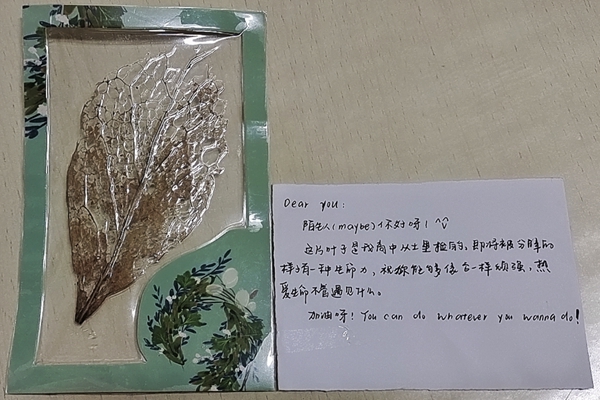 Dear you:
陌生人(maybe)你好呀!^^
这片叶子是我高中从土里捡的,即将被分解的
样子有一种生命力,祝你能够像它一样顽强,热
爱生命不管遇见什么。
加油呀! You can do whatever you wanna do!